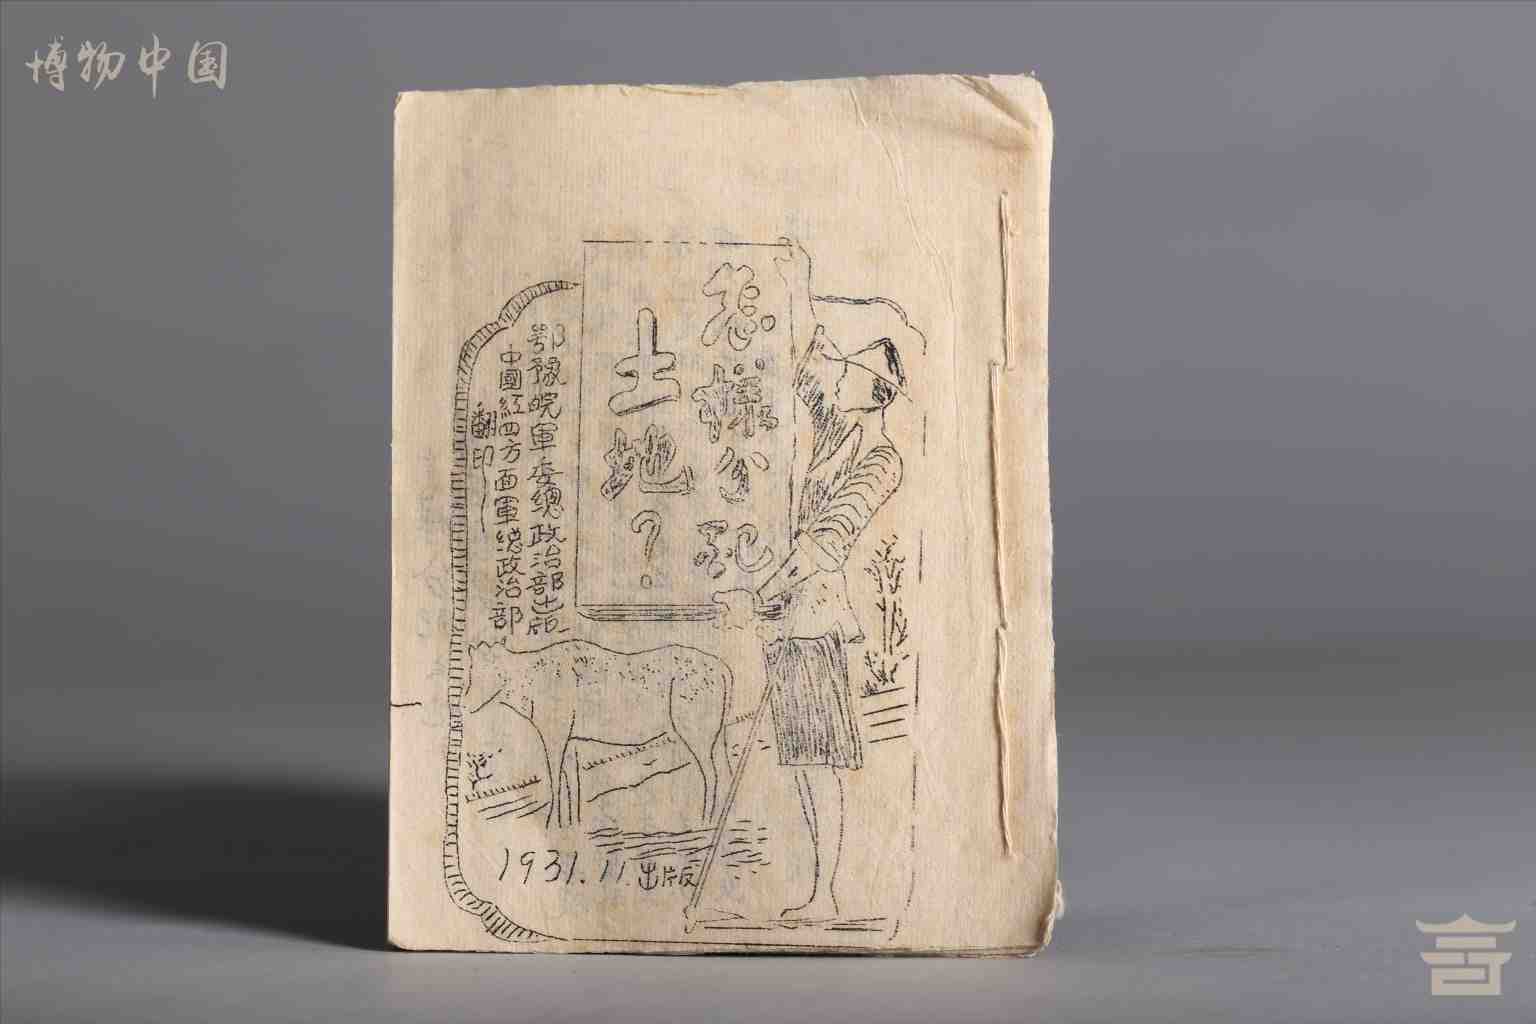 博物中国
怎樣分配
土地？
鄂豫皖軍委總政治部出版
中國紅四方面軍總政治部
翻印
1931.11.出版